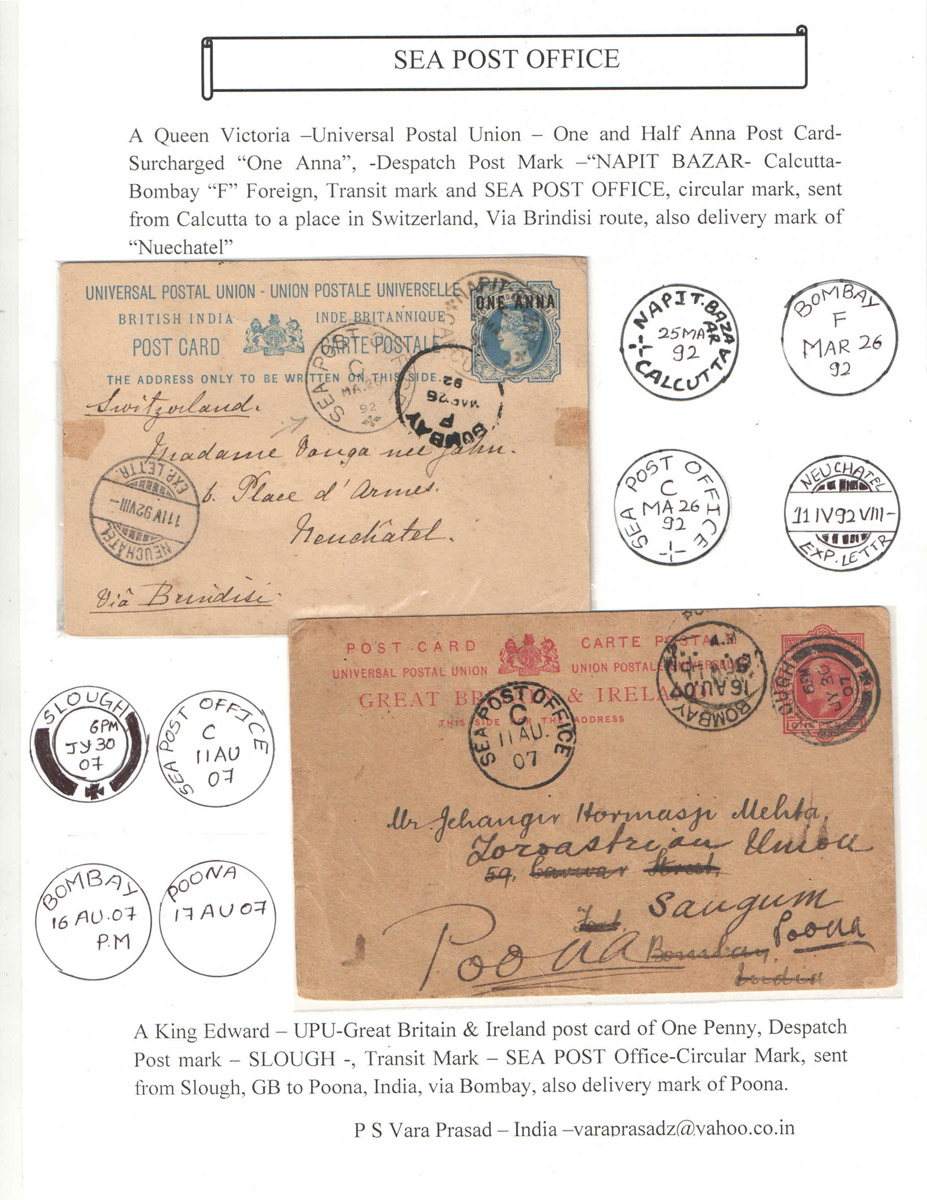 SEA POST OFFICE
A Queen Victoria –Universal Postal Union – One and Half Anna Post Card-
Surcharged “One Anna”, -Despatch Post Mark –“NAPIT BAZAR- Calcutta-
Bombay “F” Foreign, Transit mark and SEA POST OFFICE, circular mark, sent
from Calcutta to a place in Switzerland, Via Brindisi route, also delivery mark of
“Nuechatel”
UNIVERSAL POSTAL UNION - UNION POSTALE UNIVERSELLE
ONE ANNA
BRITISH INDIA INDE BRITANNIQUE
POST CARD CARTE POSTALE
THE ADDRESS ONLY TO BE WRITTEN ON THIS SIDE.
SEA POST OFFICE
C
MA 26
92
BOMBAY
F
MAR 26
92
Switzerland.
Madame Vouga nee John.
6. Place d'Armes.
Neuchâtel.
Viâ Brindisi.
NEUCHÂTEL
11 IV 92 VIII –
EXP. LETTR.
NAPIT. BAZAAR
25 MAR
92
CALCUTTA
BOMBAY
F
MAR 26
92
SEA POST OFFICE
C
MA 26
92
NEUCHATEL
11 IV 92 VIII –
EXP. LETTR
POST CARD CARTE POSTALE
UNIVERSAL POSTAL UNION UNION POSTALE UNIVERSELLE
GREAT BRITAIN & IRELAND
THIS SIDE FOR THE ADDRESS
SEA POST OFFICE
C
11 AU.
07
BOMBAY
16 AU. 07
SLOUGH
JY 30
07
ONE PENNY
Mr. Jehangir Hormasji Mehta,
Zoroastrian Union
59, Carwar Street,
Fort Saugum
Poona Bombay, Poona
India
SLOUGH
6PM
JY 30
07
SEA POST OFFICE
C
11 AU
07
BOMBAY
16 AU.07
P.M
POONA
17 AU 07
A King Edward – UPU-Great Britain & Ireland post card of One Penny, Despatch
Post mark – SLOUGH -, Transit Mark – SEA POST Office-Circular Mark, sent
from Slough, GB to Poona, India, via Bombay, also delivery mark of Poona.
P S Vara Prasad – India –varaprasadz@yahoo.co.in